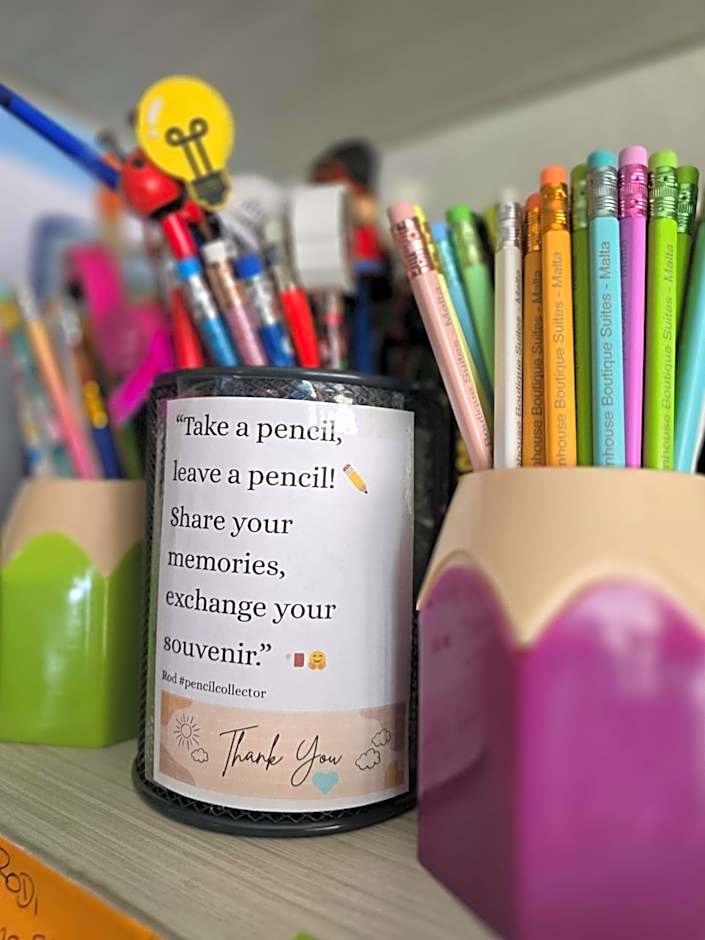 “Take a pencil,
leave a pencil! ✏️
Share your
memories,
exchange your
souvenir.” 🇲🇹🤗
Rod #pencilcollector
Thank You
Boutique Suites - Malta
nhouse Boutique Suites - Malta
nhouse Boutique Suites - Malta
nhouse Boutique Suites - Malta
RODI,